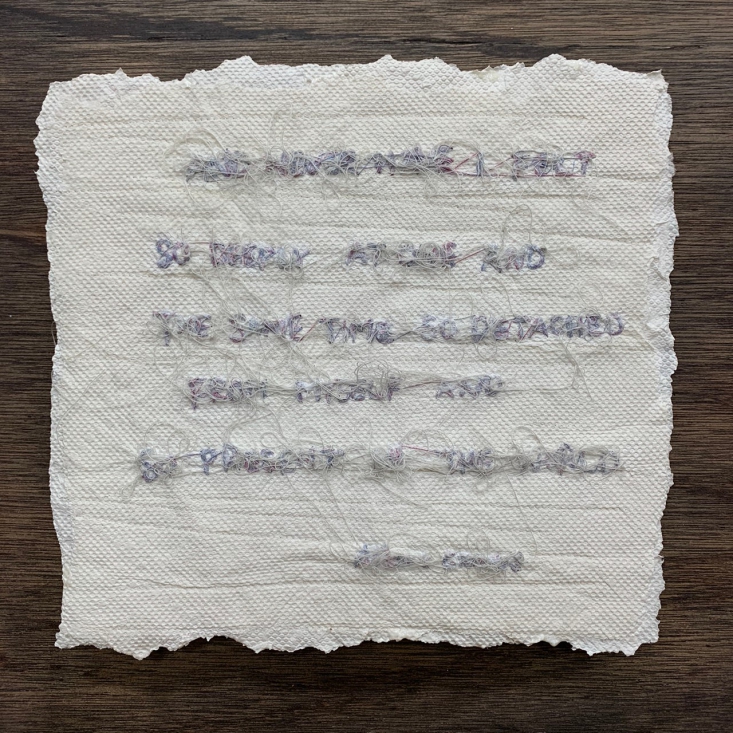 AND NEVER HAVE I FELT
SO DEEPLY AT ONE AND
THE SAME TIME SO DETACHED
FROM MYSELF AND
SO PRESENT IN THE WORLD